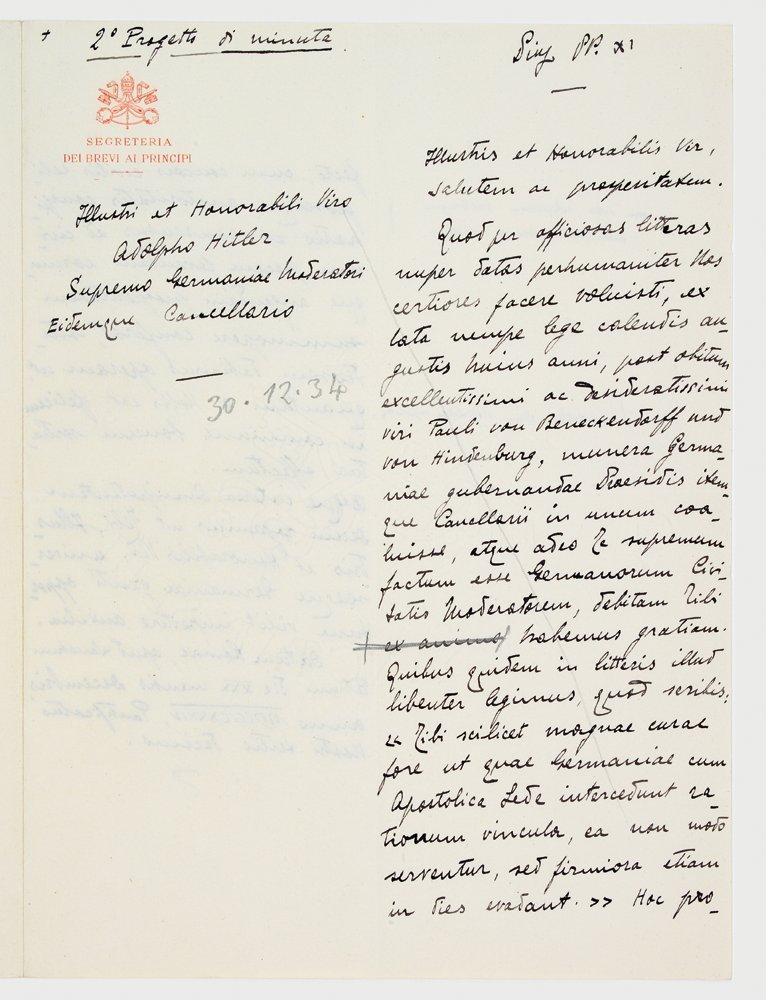 + 2º Progetto di minuta
SEGRETERIA
DEI BREVI AI PRINCIPI
Illustri et Honorabili Viro
Adolpho Hitler
Supremo Germaniae Moderatori
Eidemque Cancellario
30.12.34
Pius PP. XI
Illustris et Honorabilis Vir,
salutem ac prosperitatem.
Quod per officiosas litteras
nuper datas perhumaniter Nos
certiores facere voluisti, ex
lata nempe lege calendis au-
gustis huius anni, post obitum
excellentissimi ac desideratissimi
viri Pauli von Beneckendorff und
von Hindenburg, munera Germa-
niae gubernandae Praesidis item-
que Cancellarii in unum coa-
luisse, atque adeo Te supremum
factum esse Germanorum Civi-
tatis Moderatorem, debitam Tibi
ex animo habemus gratiam.
Quibus quidem in litteris illud
libenter legimus, quod scribis;
« Tibi scilicet magnae curae
fore ut quae Germaniae cum
Apostolica Sede intercedunt ra-
tionum vincula, ea non modo
serventur, sed firmiora etiam
in dies evadant. » Hoc pro-